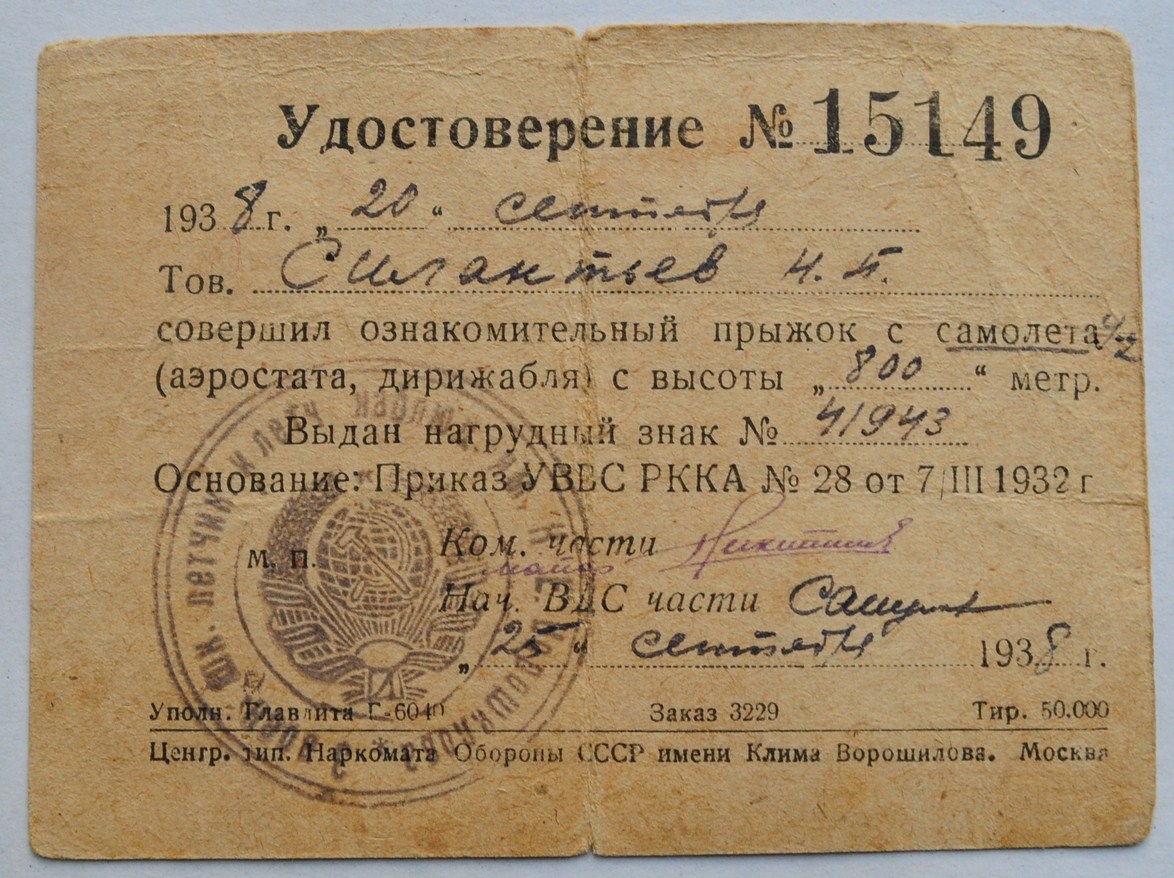 Удостоверение № 15149
1938 г. „20“ сентября
Тов. Силантьев Н. П.
совершил ознакомительный прыжок с самолета
(аэростата, дирижабля) с высоты „800“ метр.
Выдан нагрудный знак № 41943
Основание: Приказ УВВС РККА № 28 от 7/III 1932 г
М. П.
Ком. части
майор Никитин
Нач. ВДС части
„25“ сентября 1938 г.
Уполн. Главлита Г-6040
Заказ 3229
Тир. 50.000
Центр. тип. Наркомата Обороны СССР имени Клима Ворошилова. Москва